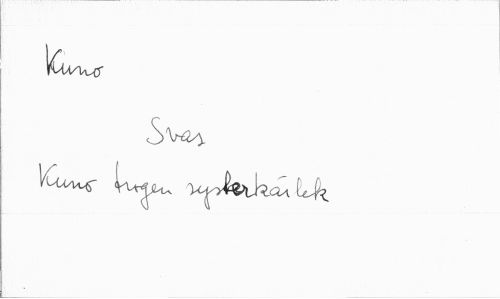 Kuno
Svas
Kuno trogen systerkärlek